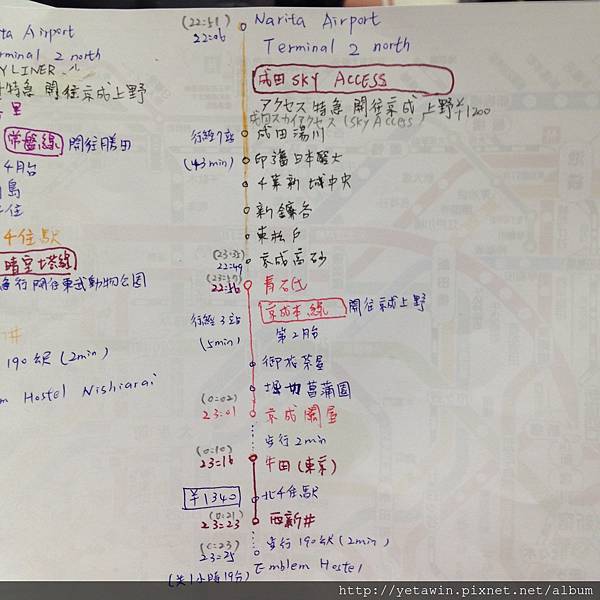 ta Airport
rminal 2 north
YLINER
特急 開往京成上野
里
常盤線 開往勝田
4月台
島
千住
千住駅
晴空塔線
急行開往東武動物公園
井
190公尺(2min)
m Hostel Nishiarai
(22:51)
22:06
Narita Airport
Terminal 2 north
成田 SKY ACCESS
アクセス特急 開往京成上野 ¥1200
成田スカイアクセス (Sky Access
行經7站
(43min)
成田湯川
印旛日本醫大
千葉新城中央
新鎌谷
東松戶
(23:35)
22:49
京成高砂
22:56
青石氏
京成本線 開往京成上野
行經3站
(5min)
第2月台
御花茶屋
堀切菖蒲園
(0:02)
23:01
京成關屋
步行2min
(0:10)
23:16
牛田(東京)
¥1340
北千住駅
(0:21)
23:23
西新井
(0:23)
23:25
步行190公尺(2min)
Emblem Hostel
(共1小時19分)
http://yetawin.pixnet.net/album